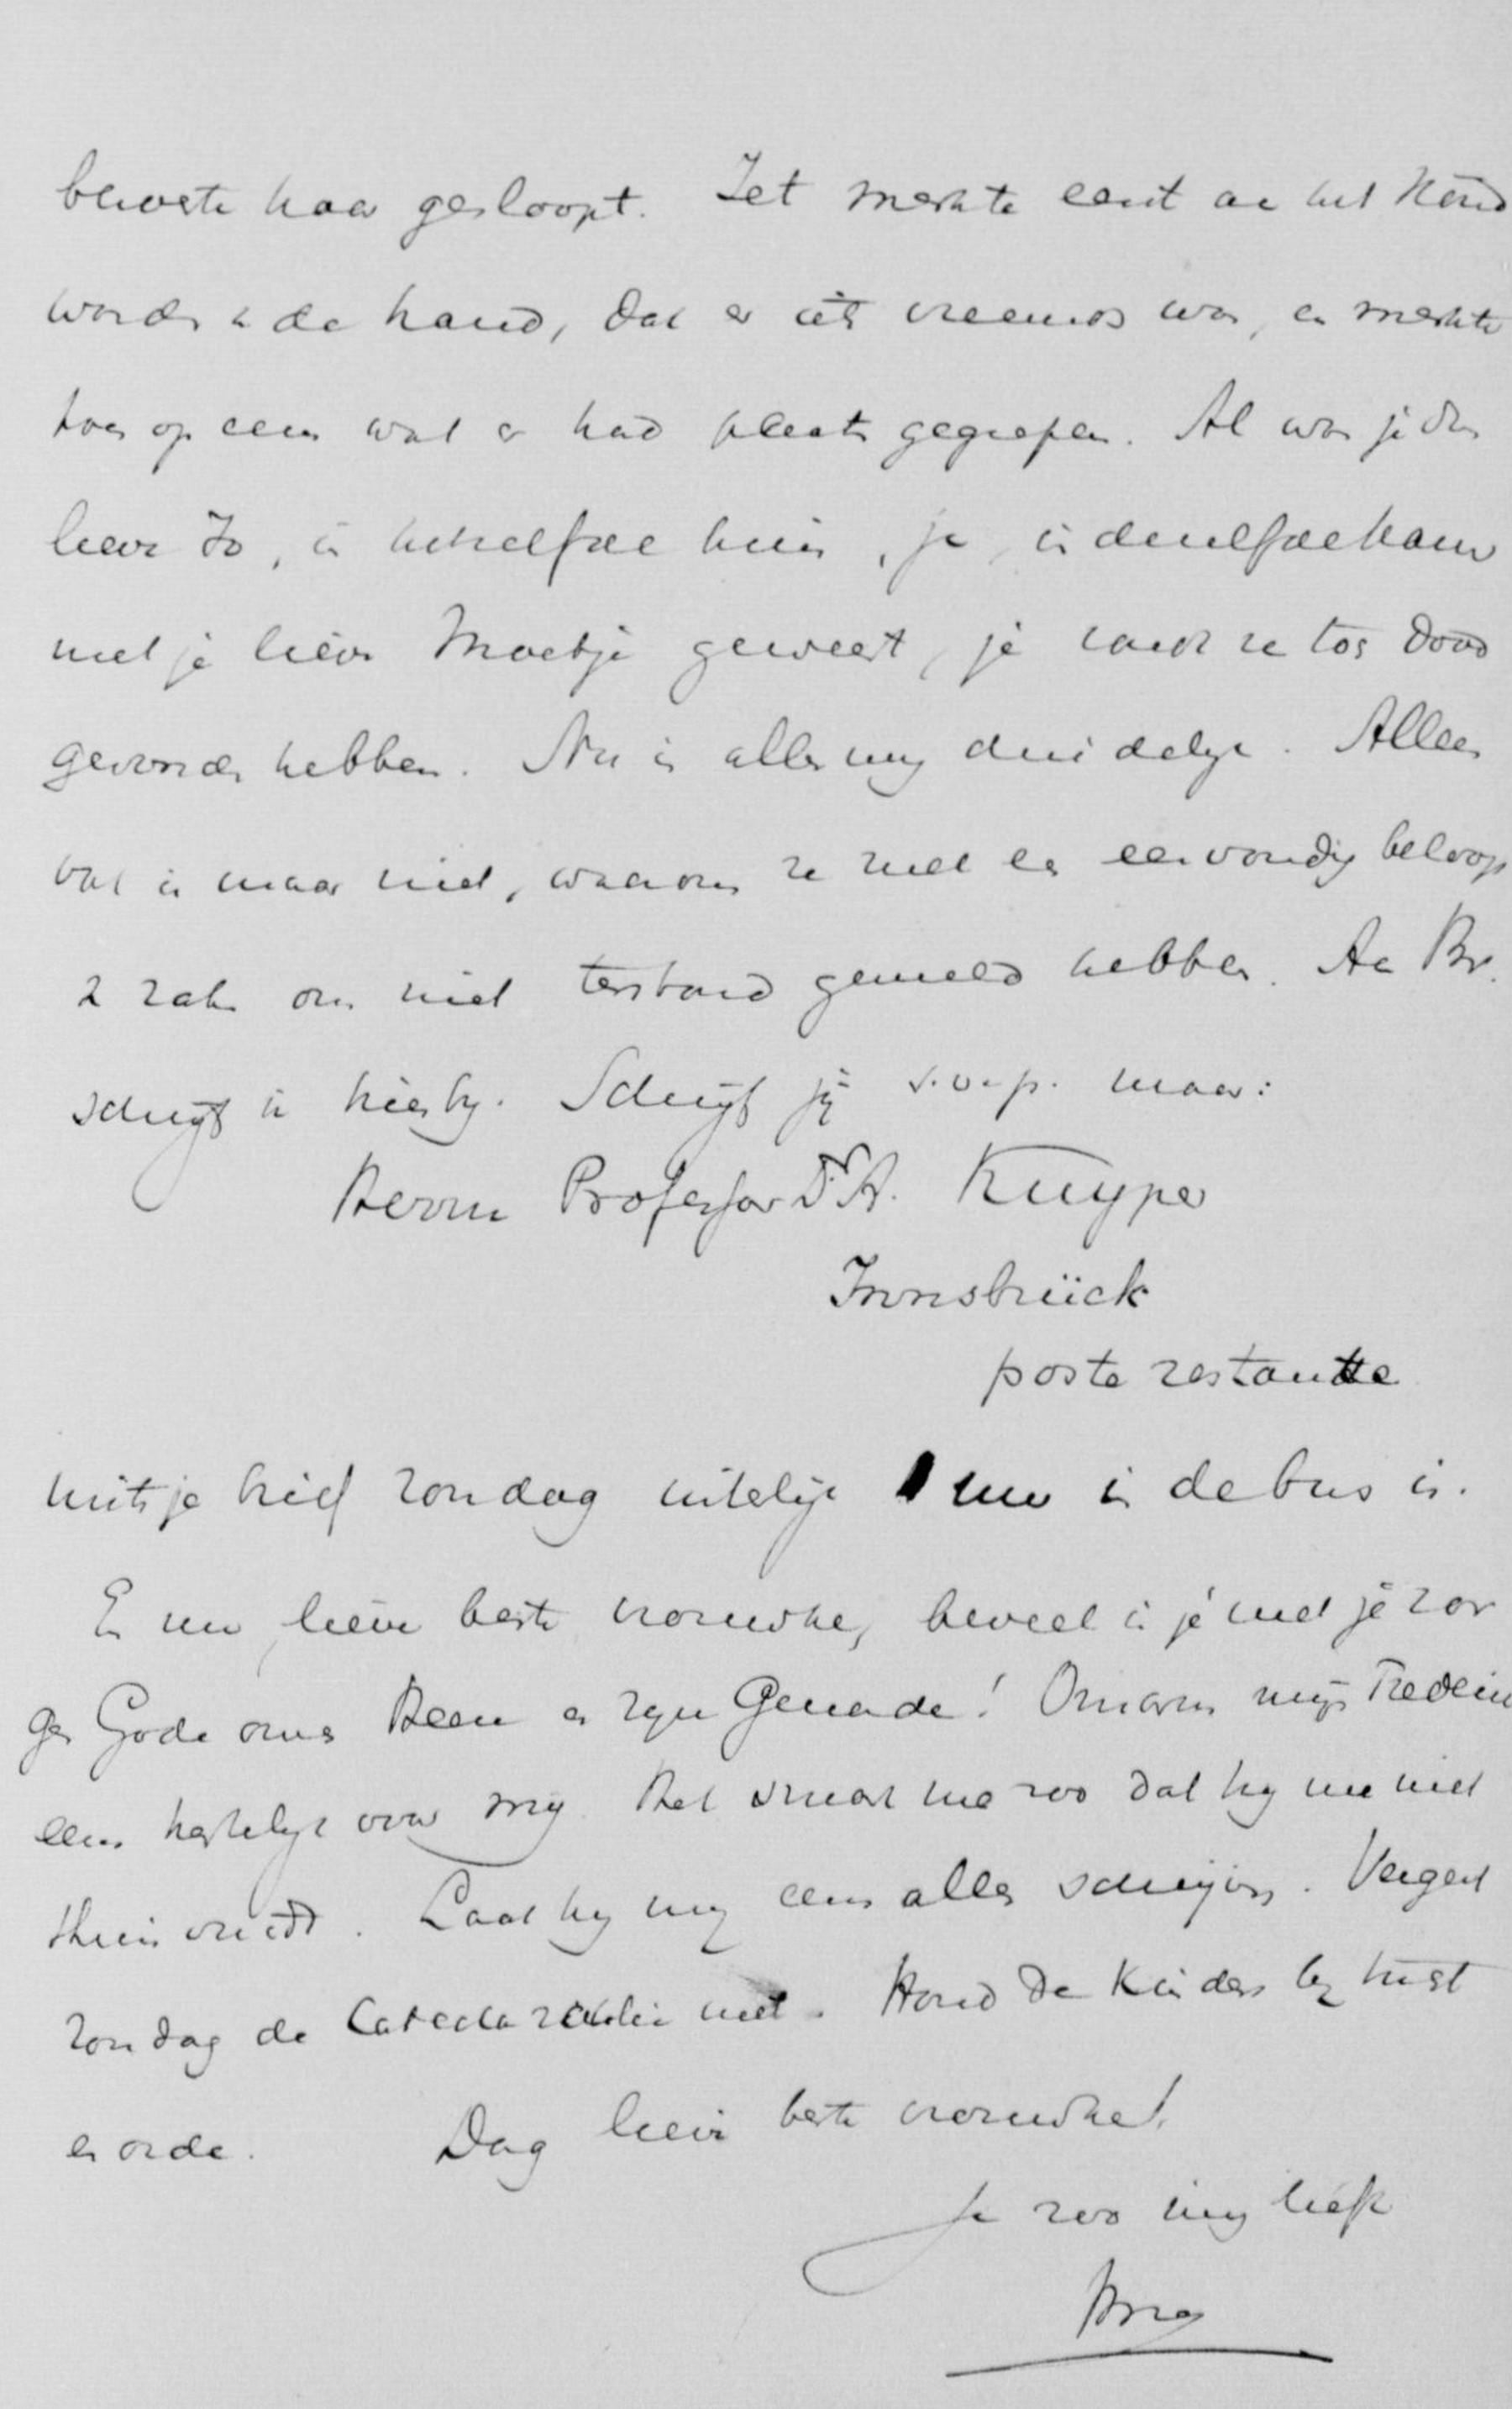 beroerte haar gesloopt. Jet merkte eerst aan het koud
worden der hand, dat er iets vreemds was, en merkte
toen op eens wat er had plaats gegrepen. Al was je dus
lieve Jo, in hetzelfde huis, ja, in dezelfde kamer
met je lieve Moetje geweest, je zoudt ze toch dood
gevonden hebben. Nu is alles mij duidelijk. Alleen
vat ik maar niet, waarom ze met een eenvoudig
zaak ons niet terstond gemeld hebben. Aan Br.
schrijf ik hierbij. Schrijf jij s.v.p. maar:
Herrn Professor Dr A. Kuyper
Innsbrück
poste restante
mits je brief Zondag uiterlijk 1 uur in de bus is.
En nu, lieve beste vrouwke, beveel ik je met je zor
gen Gode onzen Heere en zijn Genade! Omarm mijn
eens hartelijk voor mij. Het smart me zoo dat hij me niet
thuis vindt. Laat hij mij eens alles schrijven. Vergeet
Zondag de niet. Houd de kinders bij tucht
en orde. Dag lieve beste vrouwke!
Je zoo innig liefh
Bram